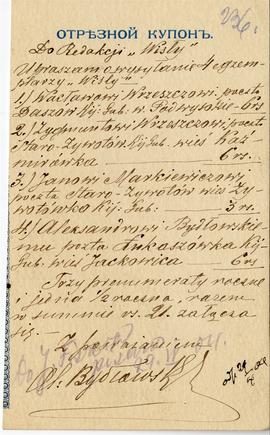 236.
ОТРѢЗНОЙ КУПОНЪ.
Do Redakcji „Wisły”
Upraszam o wysyłanie 4 egzem-
plarzy „Wisły”
1.) Wacławowi Wrzeszczowi, poczta
Daszów Kij. Gub. w. Podwysokie - 6rs.
2.) Zygmuntowi Wrzeszczowi, poczta
Staro-Żywotów Kij. Gub. wieś Kaź-
mirówka 6 rs.
3.) Janowi Markiewiczowi
poczta Staro-Żywotów wieś Ży-
wotówka Kij. Gub. 3 rs.
4.) Aleksandrowi Bydłowskie-
mu poczta Łukaszówka Kij.
Gub. wieś Jackowica 6 rs
Trzy prenumeraty roczne
i jedną ½ roczną, razem
w summie rs. 21. załącza
się.
Z poważaniem
Al. Bydłowski